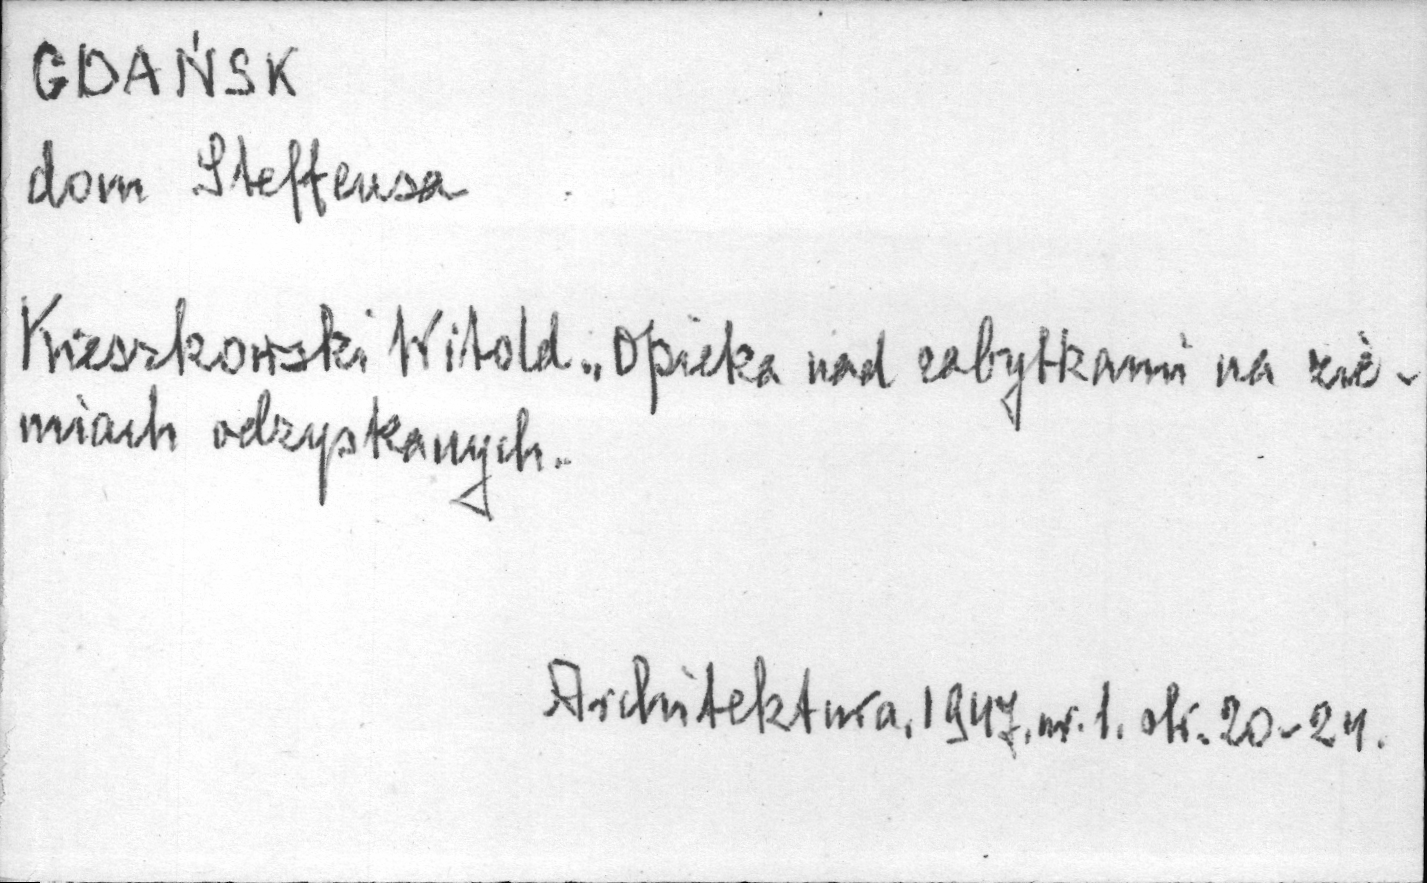 GDAŃSK
dom Steffensa
Kieszkowski Witold. „Opieka nad zabytkami na zie-
miach odzyskanych.
Architektura, 1947, nr. 1. str. 20-24.